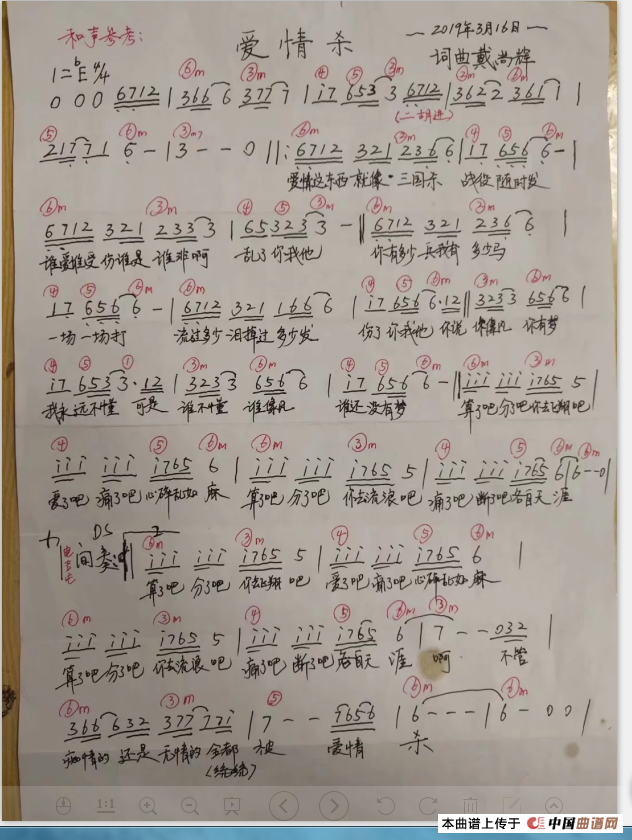 和声参考:
爱情杀
—2019年3月16日—
词曲戴尚辉
1=bE 4/4
⑥m ③m ④ ⑤ ③ ③m
0 0 0 6712 | 366 6 377 7 | i7 653 3 6712 | 362 2 361 1 |
(二胡进)
⑤ ⑥m ③m7 ⑥m ③m ④ ⑤ ⑥m
21771 6 - | 3 - - 0 ||: 6712 321 236 6 | 17 656 6 - |
爱情这东西 就像 三国杀 战役 随时发
⑥m ③m ④ ⑤ ③ ⑥m ③m
6712 321 233 3 | 65323 3 - | 6712 321 236 6 |
谁爱谁受 伤谁是 谁非啊 乱了你我他 你有多少 兵我有 多少马
④ ⑤ ⑥m ⑥m ④ ⑤ ⑥m ③m ⑥m
17 656 6 - | 6712 321 166 6 | i7 656 6·12 | 323 3 656 6 |
一场一场打 流过多少 泪掉过 多少发 伤了你我他 你说 像 你有梦
④ ⑤ ① ③m ⑥m ④ ⑤ ⑥m ⑥m ③m
i7 653 3·12 | 323 3 656 6 | i7 656 6 - || iii iii i765 5 |
我永远不懂 可是 谁不懂 谁 谁还没有梦 算了吧 分了吧 你去飞翔吧
④ ⑤ ⑥m ⑥m ③m ④ ⑤ ⑥m ⑥m
iii iii i765 6 | iii iii i765 5 | iii iii i765 6 | 6 - - 0 |
爱了吧 痛了吧 心碎乱如麻 算了吧 分了吧 你去流浪吧 痛了吧 断了吧 各自天涯
DS 2
间奏
⑥m ③m ④ ⑤ ⑥m
iii iii i765 5 | iii iii i765 6 |
算了吧 分了吧 你去飞翔吧 爱了吧 痛了吧 心碎乱如麻
⑥m ③m ④ ⑤ ⑥m ③m
iii iii i765 5 | iii iii i765 6 | 7 - - 032 |
算了吧 分了吧 你去流浪吧 痛了吧 断了吧 各自天涯 啊 不管
⑥m ③m ⑤ ⑥m ⑥m
366 632 377 77i | 7 - - 7656 | 6 - - - | 6 - 0 0 |
痴情的 还是 无情的 全都 被 爱情 杀
(统统)
1:1
本曲谱上传于 中国曲谱网